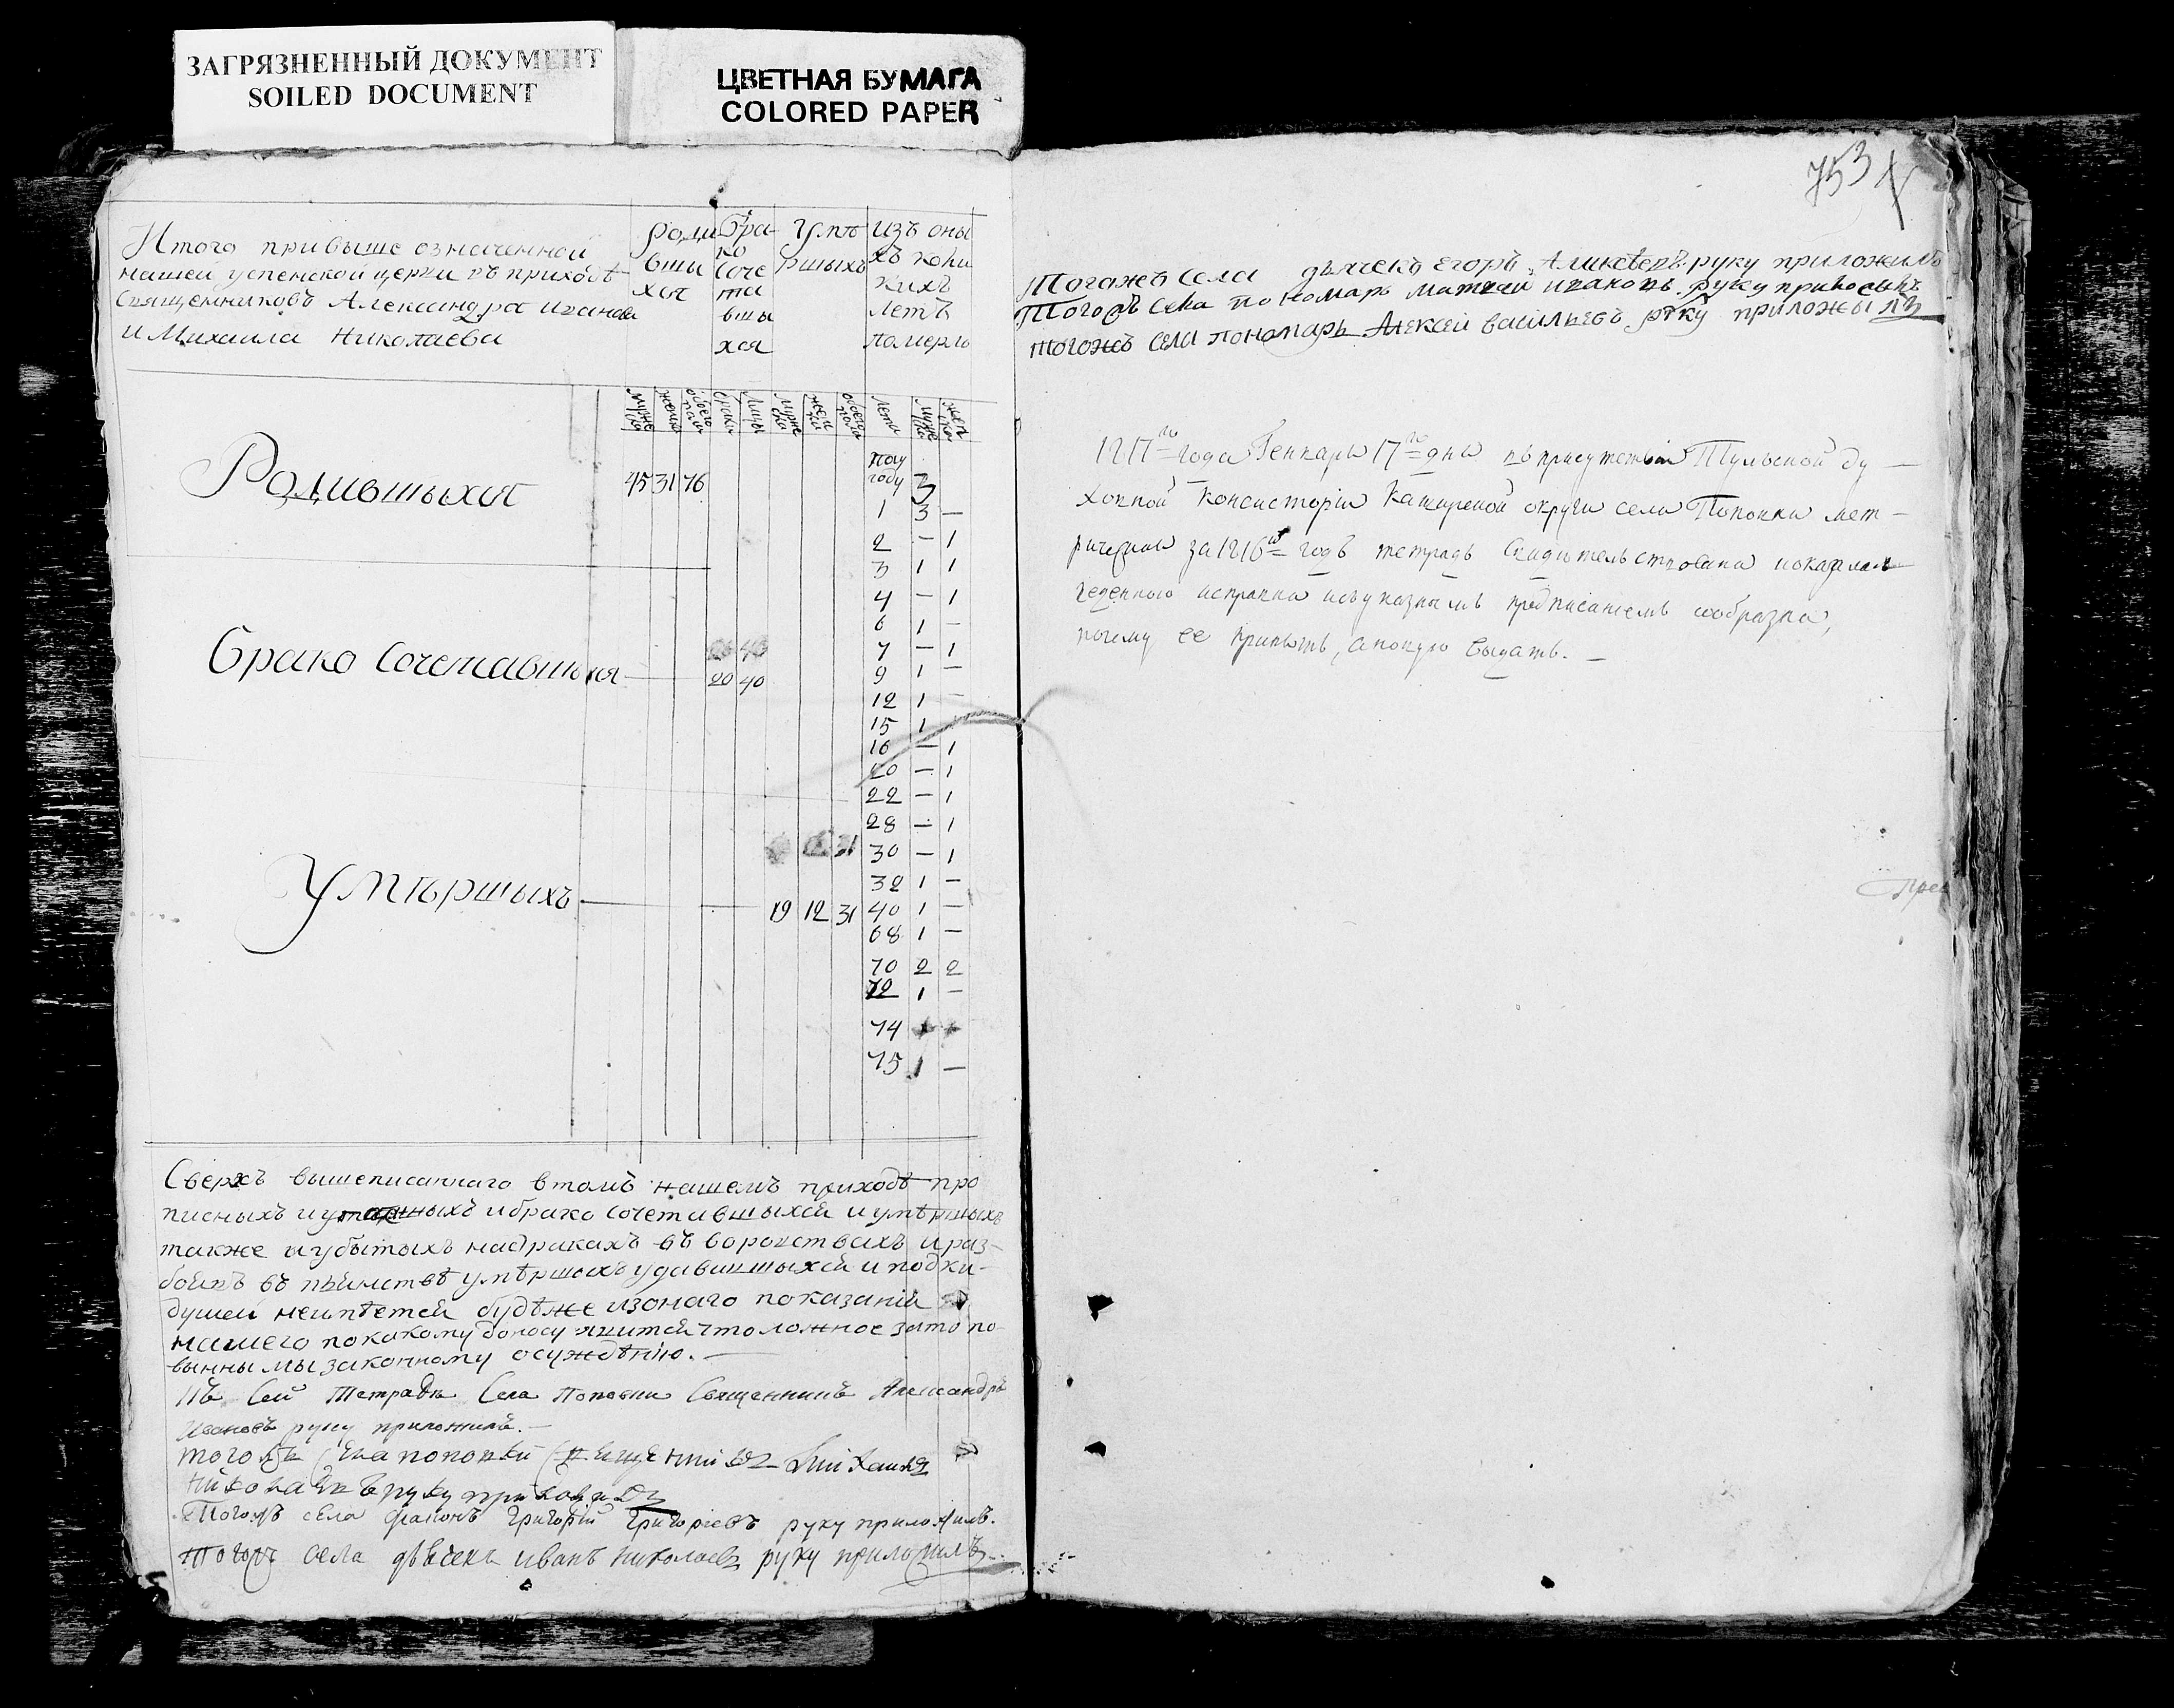 ЗАГРЯЗНЕННЫЙ ДОКУМЕНТ
SOILED DOCUMENT
ЦВЕТНАЯ БУМАГА
COLORED PAPER
Итого привыше означенной
нашей успенской церкви въ приходѣ
священниковъ Александра иванова
и Михаила Николаева
роди вшы хся
Бра ко соче та вшы хся
Умѣ ршыхъ
изъ оны хъ коли кихъ летъ померло
муже ска
женска
обоего пола
браки
Лицы
муже ска
жен ска
обоего пола
Лета
муже ска
жен ска
Родившыхся 45 31 76
поу году 3
1 3 —
2 — 1
3 1 1
4 — 1
6 1 —
7 — 1
9 1 —
12 1 —
15 1
16 — 1
20 — 1
22 — 1
28 — 1
30 — 1
32 1 —
40 1 —
68 1 —
70 2 2
72 1 —
74
75 1 —
Брако сочетавшихся — 20 40
Умѣршыхъ — 19 12 31
Сверхъ вышеписаннаго втомъ нашемъ приходѣ про
писныхъ и ибрако сочетившыхся и умѣршыхъ
также и убытыхъ надракахъ въ воровствахъ и раз-
боихъ въ пьянствѣ умѣршыхъ удавившыхся и подки-
душей неимѣется будѣже изонаго показания
нашего покакому доносу явится что ложное зато по-
вынны мы законному осуждѣнию. —
Къ Сей Тетради Села Поповки Священникъ Александръ
Ивановъ руку приложилъ. —
тогожъ села поповки священникъ Михаилъ
Николаевъ руку приложилъ
Тогожъ села диаконъ Григорий Григориевъ руку приложилъ.
Тогожъ села дьячекъ иванъ николаевъ руку приложилъ
753
Тогожъ села дьячекъ Егоръ Аликсѣевъ руку приложилъ
Тогожъ села пономарь матвей иваковъ руку приложилъ
тогожъ села пономарь Алексей васильевъ руку приложылъ
1817го года Генваря 17го дня въ присутствии Тульской ду —
ховной Консистории Каширской округи села Поповки мет —
рическая за 1816й годъ тетрадь свидительствована и
исправна исъуказнымъ предписаниемъ сообразна,
почему ее принять, а выдать. —